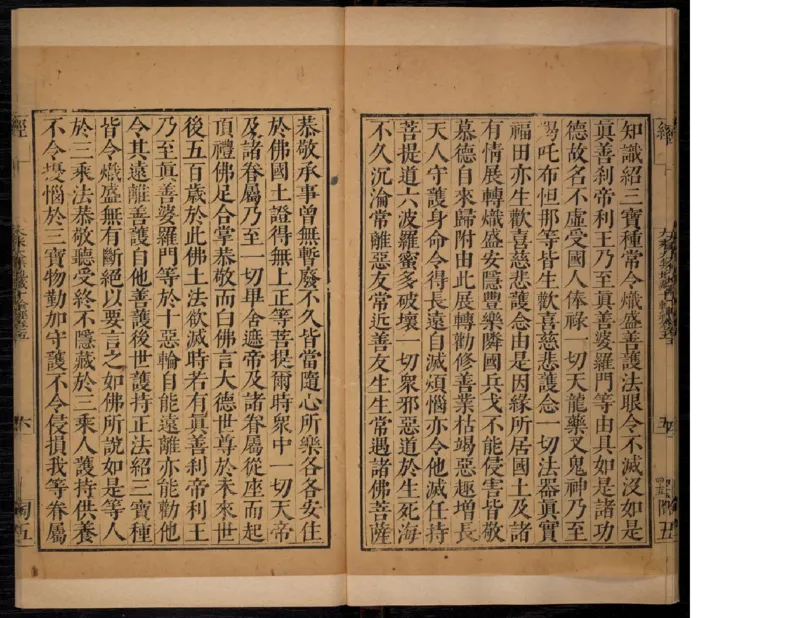 知識紹三寶種常令熾盛善護法眼令不滅沒如是
眞善刹帝利王乃至眞善婆羅門等由具如是諸功
德故名不虛受國人俸祿一切天龍藥叉鬼神乃至
羯吒布怛那等皆生歡喜慈悲護念一切法器眞實
福田亦生歡喜慈悲護念由是因緣所居國土及諸
有情展轉熾盛安隱豐樂隣國兵戈不能侵害皆敬
慕德自來歸附由此展轉勸修善業枯竭惡趣增長
天人守護身命令得長遠自滅煩惱亦令他滅任持
菩提道六波羅蜜多破壞一切衆邪惡道於生死海
不久沉淪常離惡友常近善友生生常遇諸佛菩薩
恭敬承事曾無暫廢不久皆當隨心所樂各各安住
於佛國土證得無上正等菩提爾時衆中一切天帝
及諸眷屬乃至一切畢舍遮帝及諸眷屬從座而起
頂禮佛足合掌恭敬而白佛言大德世尊於未來世
後五百歲於此佛土法欲滅時若有眞善刹帝利王
乃至眞善婆羅門等於十惡輪自能遠離亦能勸他
令其遠離善護自他善護後世護持正法紹三寶種
皆令熾盛無有斷絕以要言之如佛所說如是等人
於三乘法恭敬聽受終不隱藏於三乘人護持供養
不令擾惱於三寶物勤加守護不令侵損我等眷屬
經
經